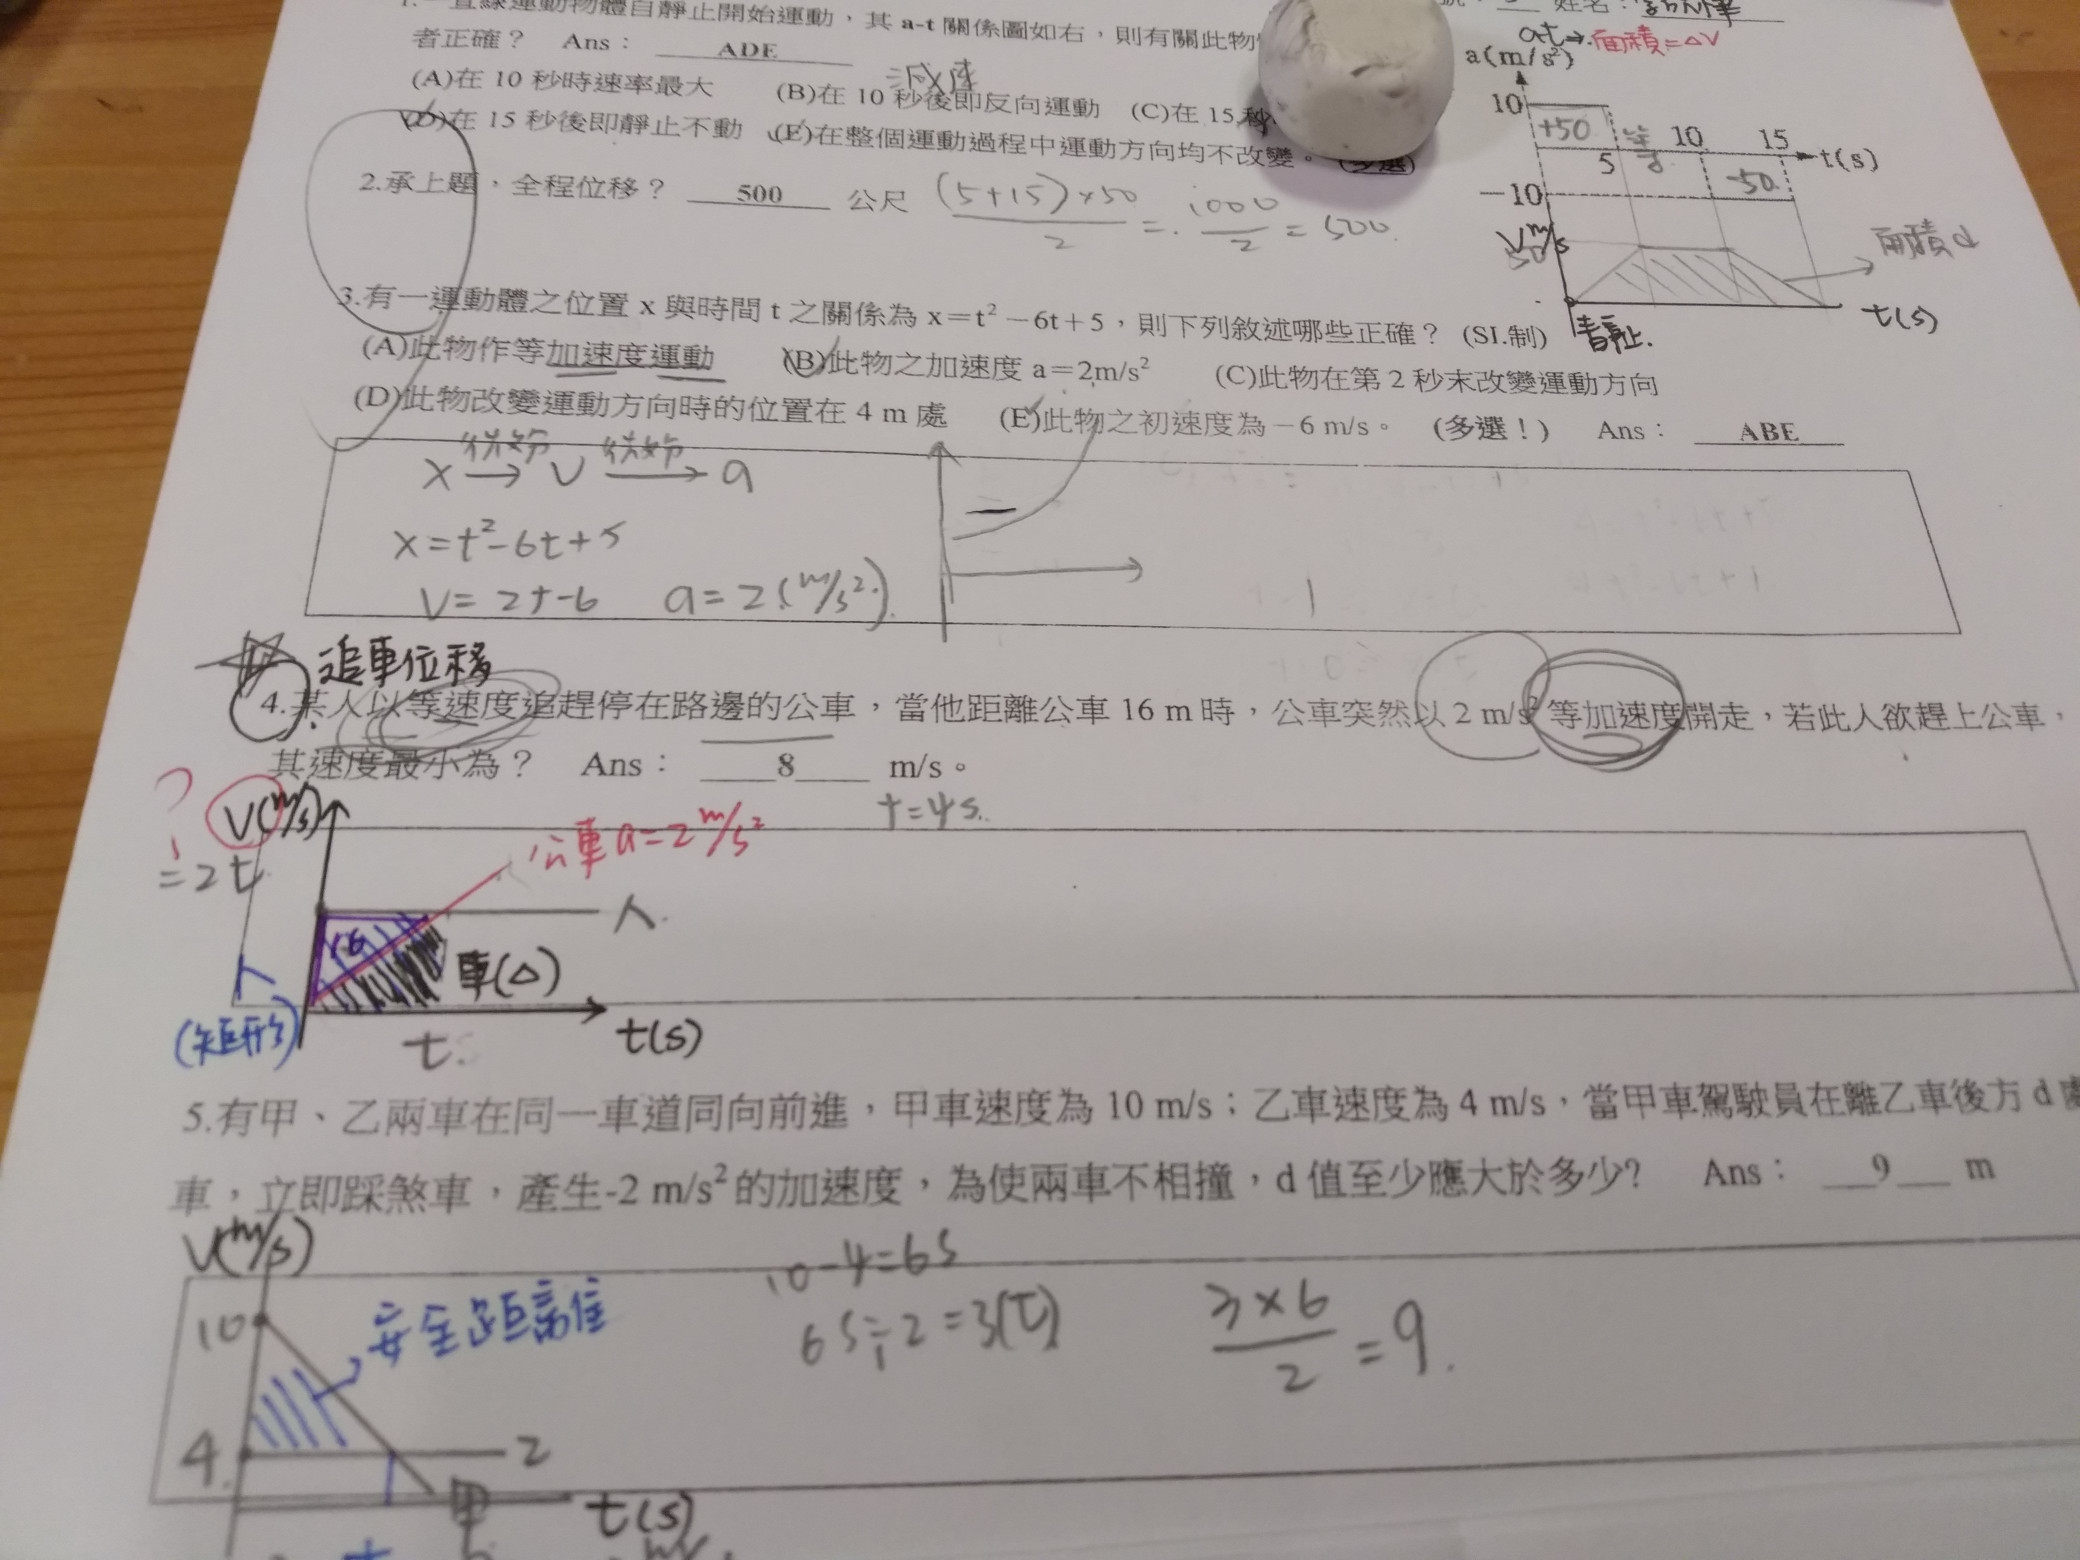 1.一直線運動物體自靜止開始運動，其 a-t 關係圖如右，則有關此物
者正確？ Ans： ADE
減速
(A)在 10 秒時速率最大 (B)在 10 秒後即反向運動 (C)在 15 秒
(D)在 15 秒後即靜止不動 (E)在整個運動過程中運動方向均不改變。(多選)
姓名：
at→面積=△V
a(m/s²)
10
+50
5
10
15
t(s)
-10
-50
V m/s
50
面積d
t(s)
靜止.
2.承上題，全程位移？ 500 公尺 (5+15)×50/2=1000/2=500.
3.有一運動體之位置 x 與時間 t 之關係為 x＝t²－6t＋5，則下列敘述哪些正確？ (SI.制)
(A)此物作等加速度運動 (B)此物之加速度 a＝2m/s² (C)此物在第 2 秒末改變運動方向
(D)此物改變運動方向時的位置在 4 m 處 (E)此物之初速度為－6 m/s。 (多選！) Ans： ABE
X 微分→ V 微分→ a
X=t²-6t+5
V=2t-6 a=2(m/s²).
追車位移
4.某人以等速度追趕停在路邊的公車，當他距離公車 16 m 時，公車突然以 2 m/s² 等加速度開走，若此人欲趕上公車，
其速度最小為？ Ans： 8 m/s。
t=4s.
?
V(m/s)
=2t
公車 a=2m/s²
人.
16
車(△)
人
(矩形)
t
t(s)
5.有甲、乙兩車在同一車道同向前進，甲車速度為 10 m/s；乙車速度為 4 m/s，當甲車駕駛員在離乙車後方 d 處
車，立即踩煞車，產生-2 m/s² 的加速度，為使兩車不相撞，d 值至少應大於多少? Ans： 9 m
V(m/s)
10
安全距離
10-4=6s
6s÷2=3(t)
3×6/2=9.
4
乙
甲
t(s)